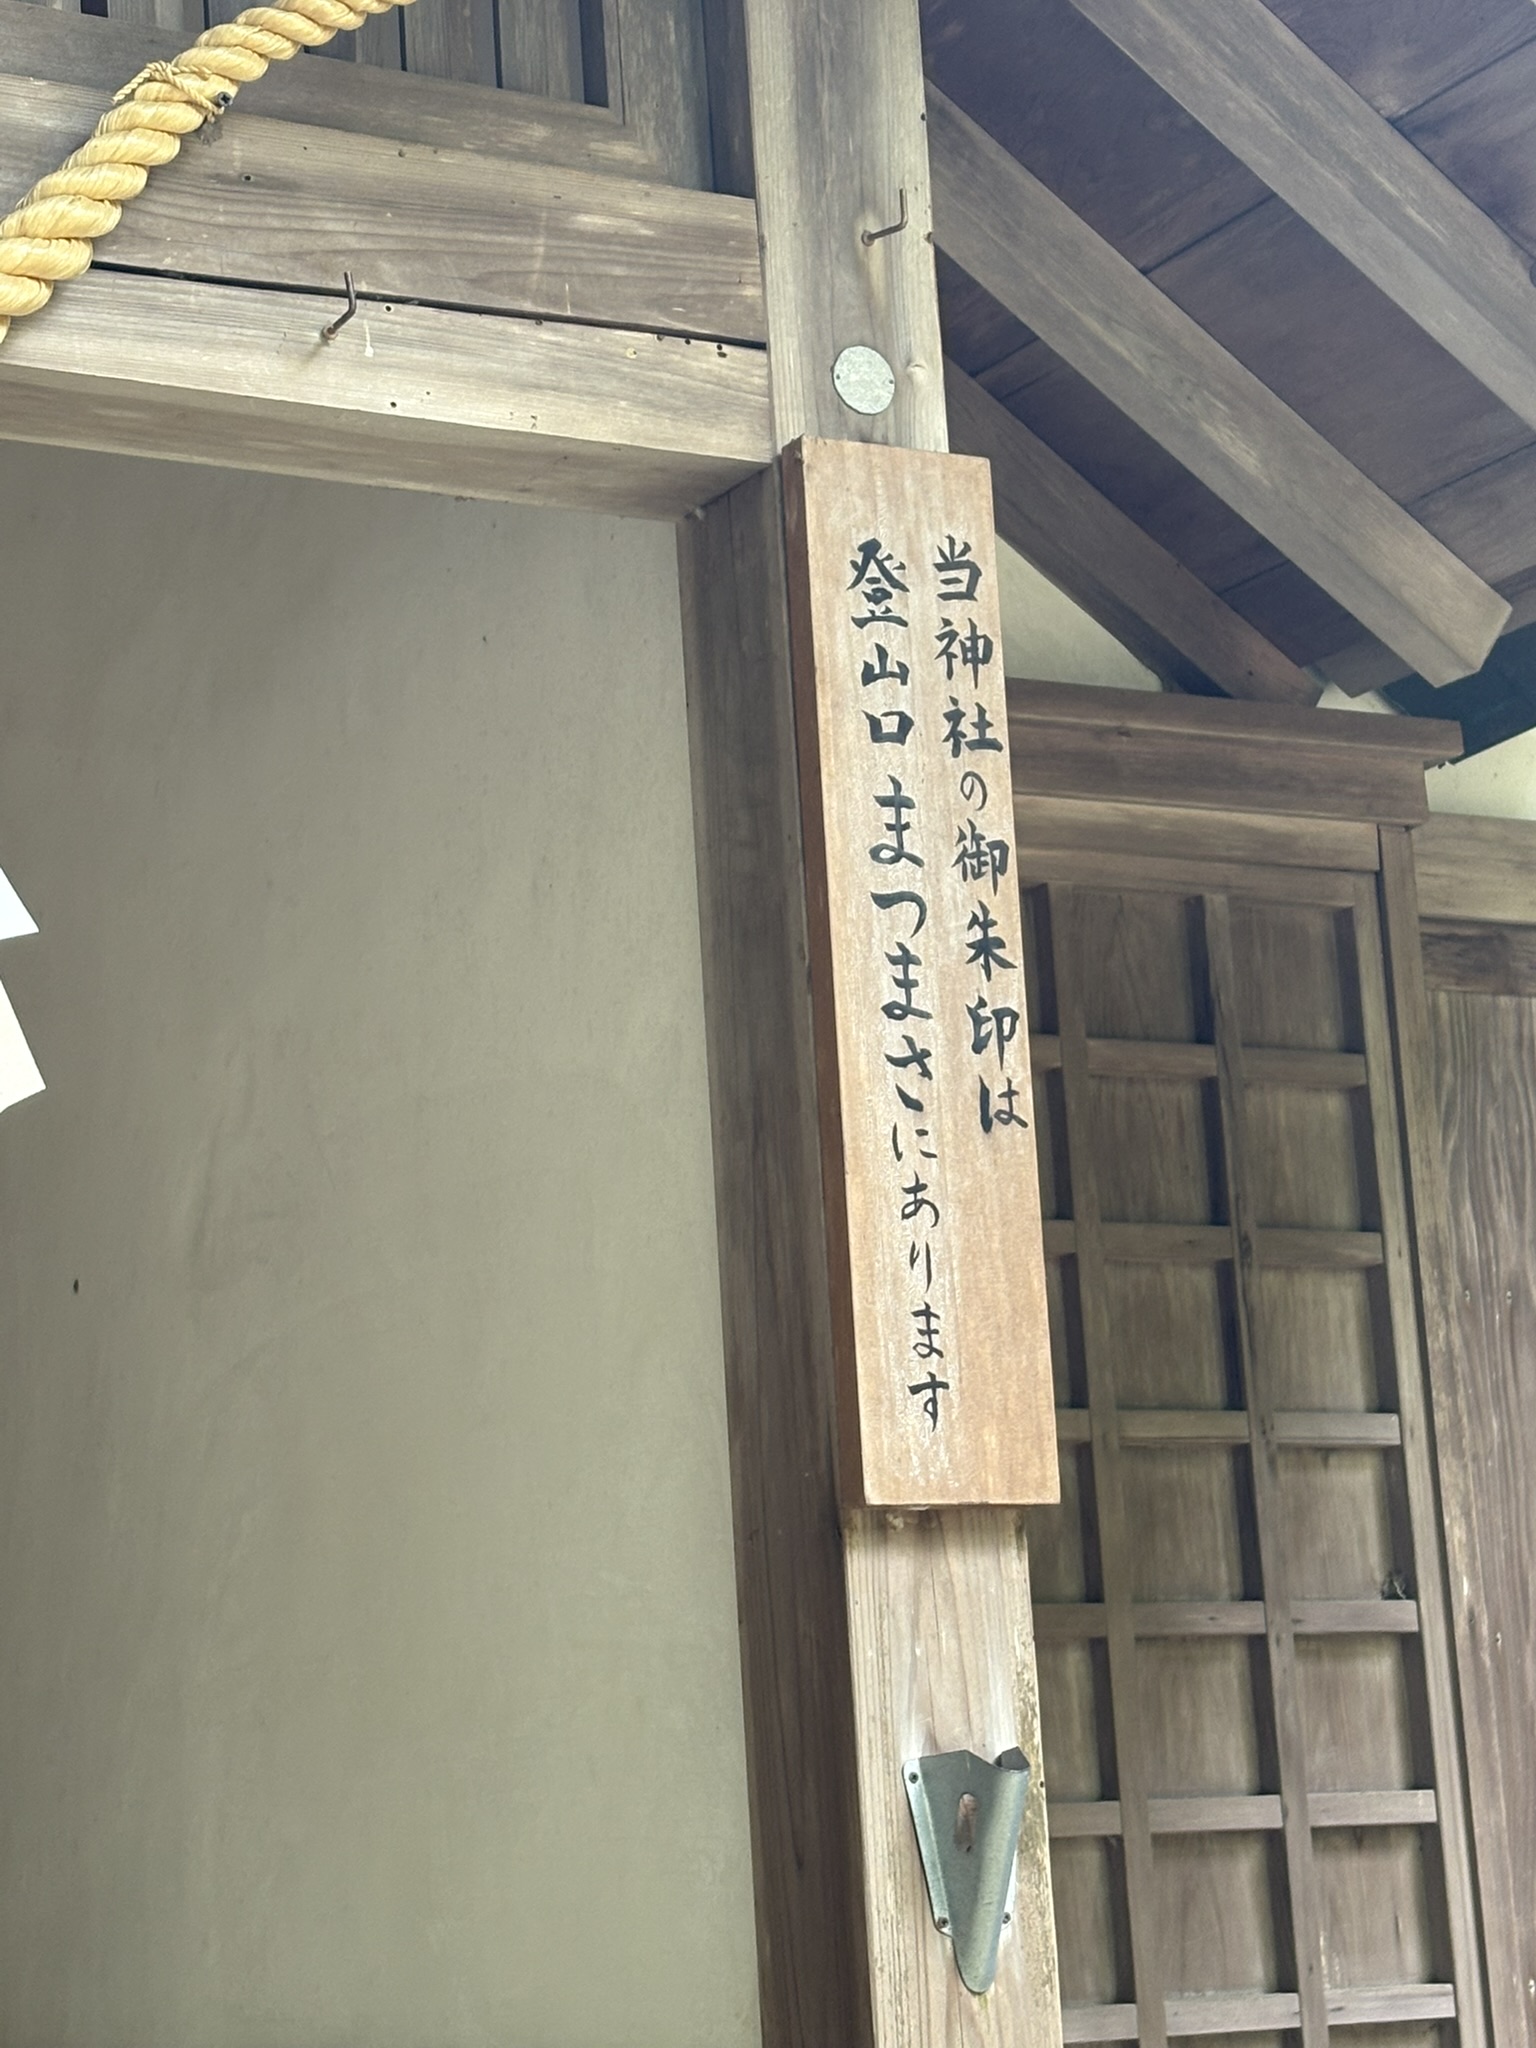 当神社の御朱印は
登山口まつまさにあります